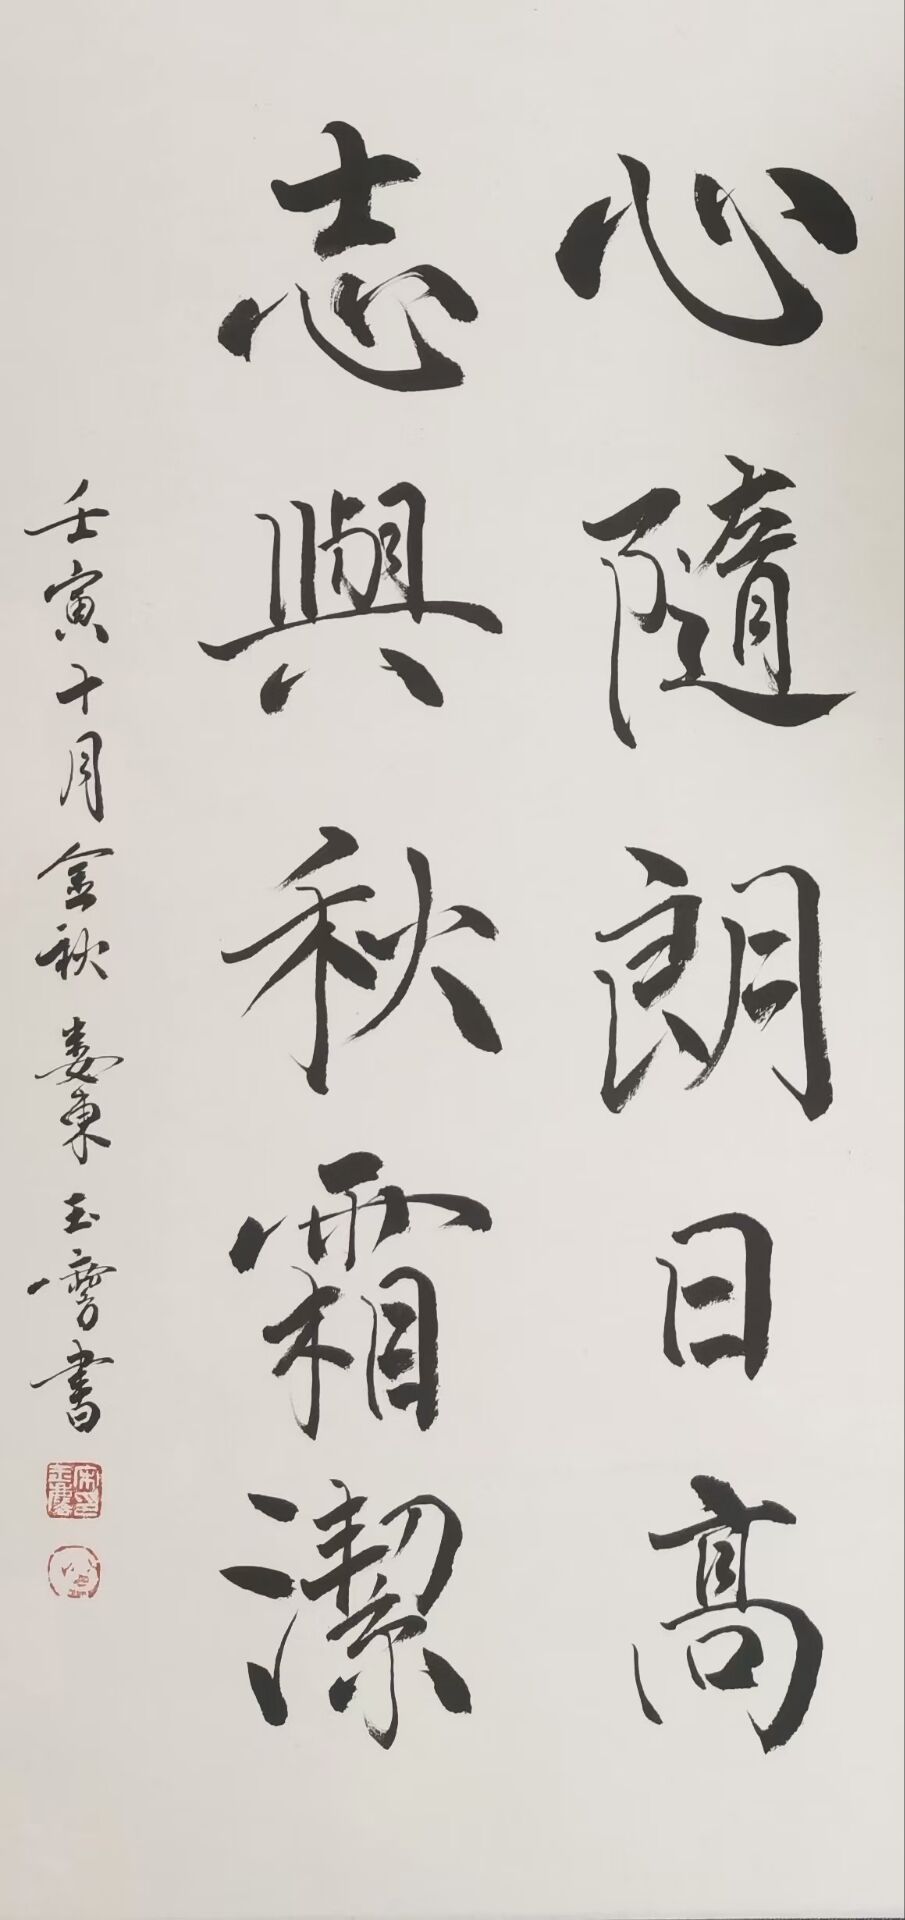 心隨朗日高
志與秋霜潔
壬寅十月金秋婁東玉書